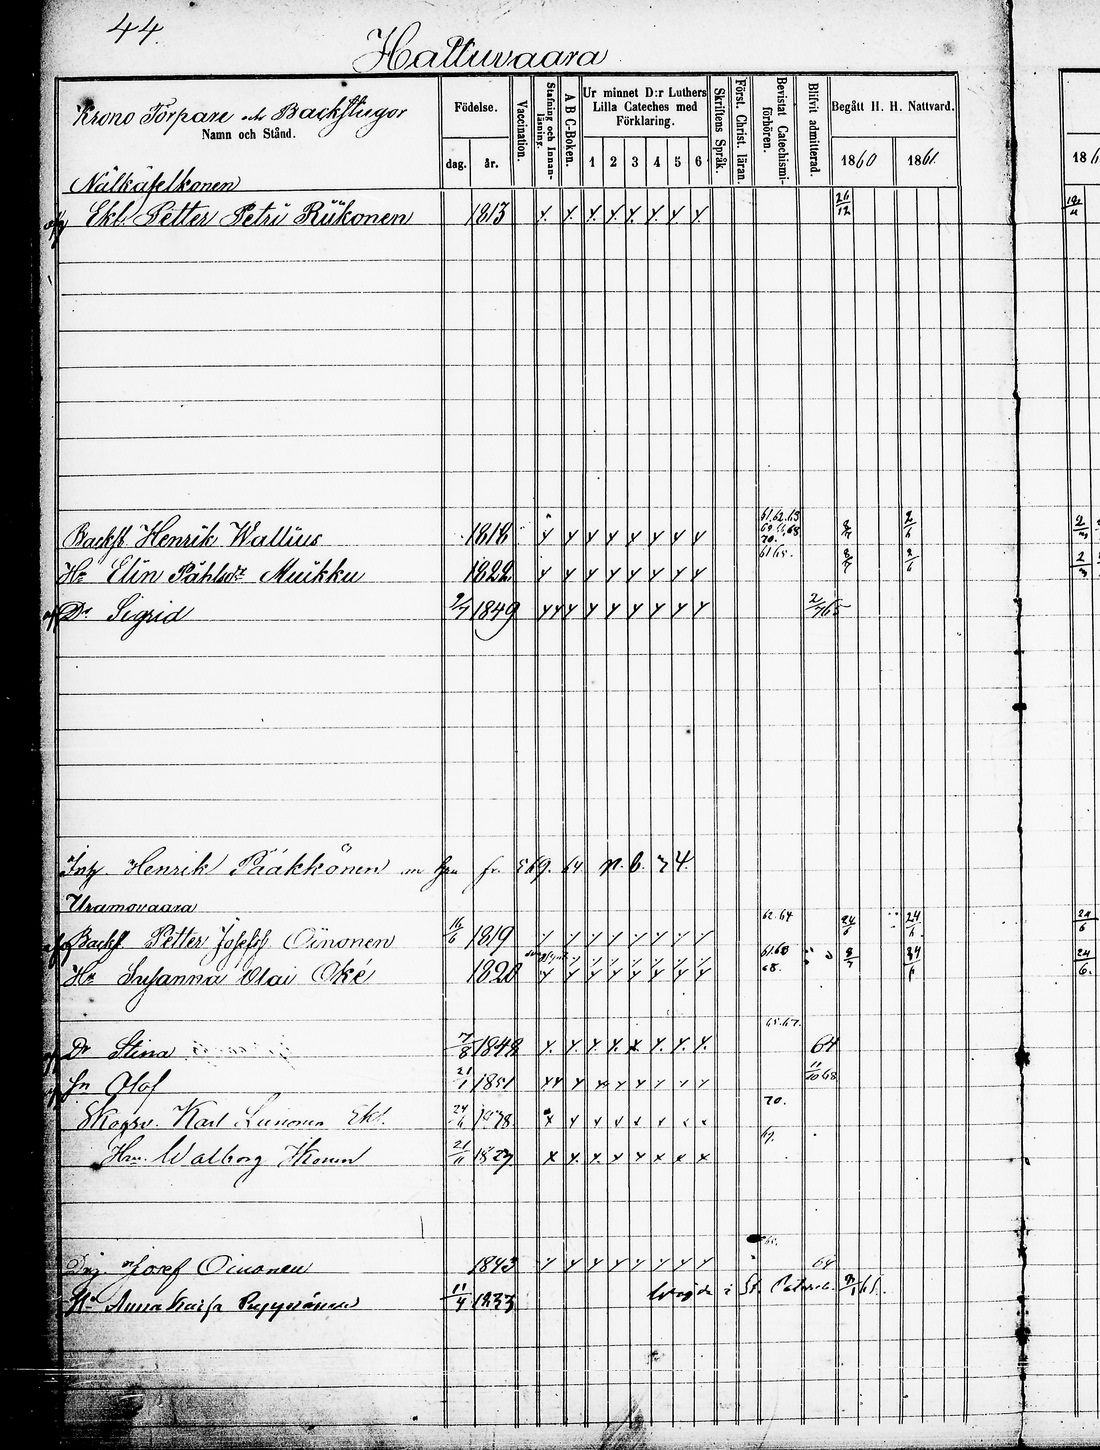 44.
Hattuvaara
Krono Torpare och Backstugor
Namn och Stånd.
Födelse.
dag. år.
Vaccination.
Stafning och Innanläsning.
A B C-Boken.
Ur minnet D:r Luthers Lilla Cateches med Förklaring.
1 2 3 4 5 6
Skriftens Språk.
Först. Christ. läran.
Bevistat Catechismiförhören.
Blifvit admitterad.
Begått H. H. Nattvard.
1860 1861. 186
Nälkäfelkonen
Ekl. Petter Petri Riikonen 1813 26/12
Backst Henrik Wallius 1818 61.62.63 70. 2/6
Hu Elin Påhlsdr Muikku 1822 61 65. 2/6
Dr Sigrid 2/7 1849 2/7 65
Inh Henrik Pääkkönen fr. 569. 64 n. b. 74.
Uramovaara
Backst Petter Josefss Oinonen 16/6 1819 62.64 24/6 24/6 24/6
Hu Susanna Olai Oké 1820 68. 8/7 24/6 24/6.
65.67.
Dr Stina 1848 64
Sn Olof 21/1 1851 11/10 68
Skogsv. Karl Ekl. 70.
Hu. Walborg Ikonen 21/11 1827 67.
Drg. Josef Oinonen 1843 64
Hu Anna Kaisa 11/4 1833 Wigde i